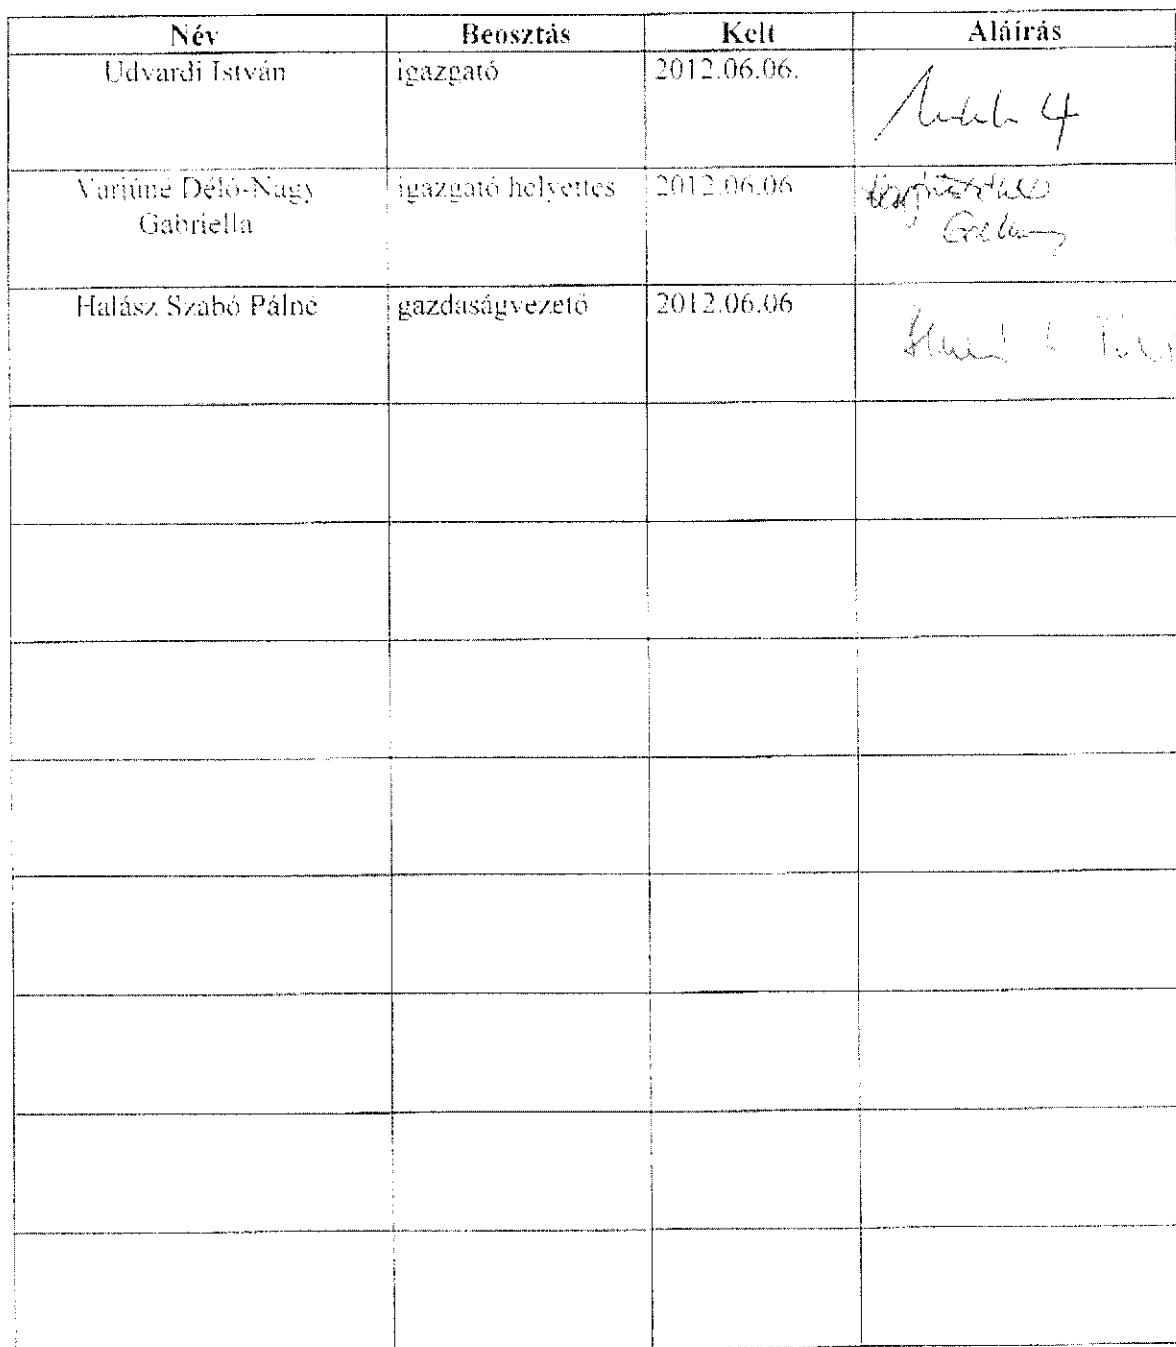 Név Beosztás Kelt Aláírás
Udvardi István igazgató 2012.06.06.
Varjúné Déló-Nagy igazgató helyettes 2012.06.06
Gabriella
Halász Szabó Pálné gazdaságvezető 2012.06.06